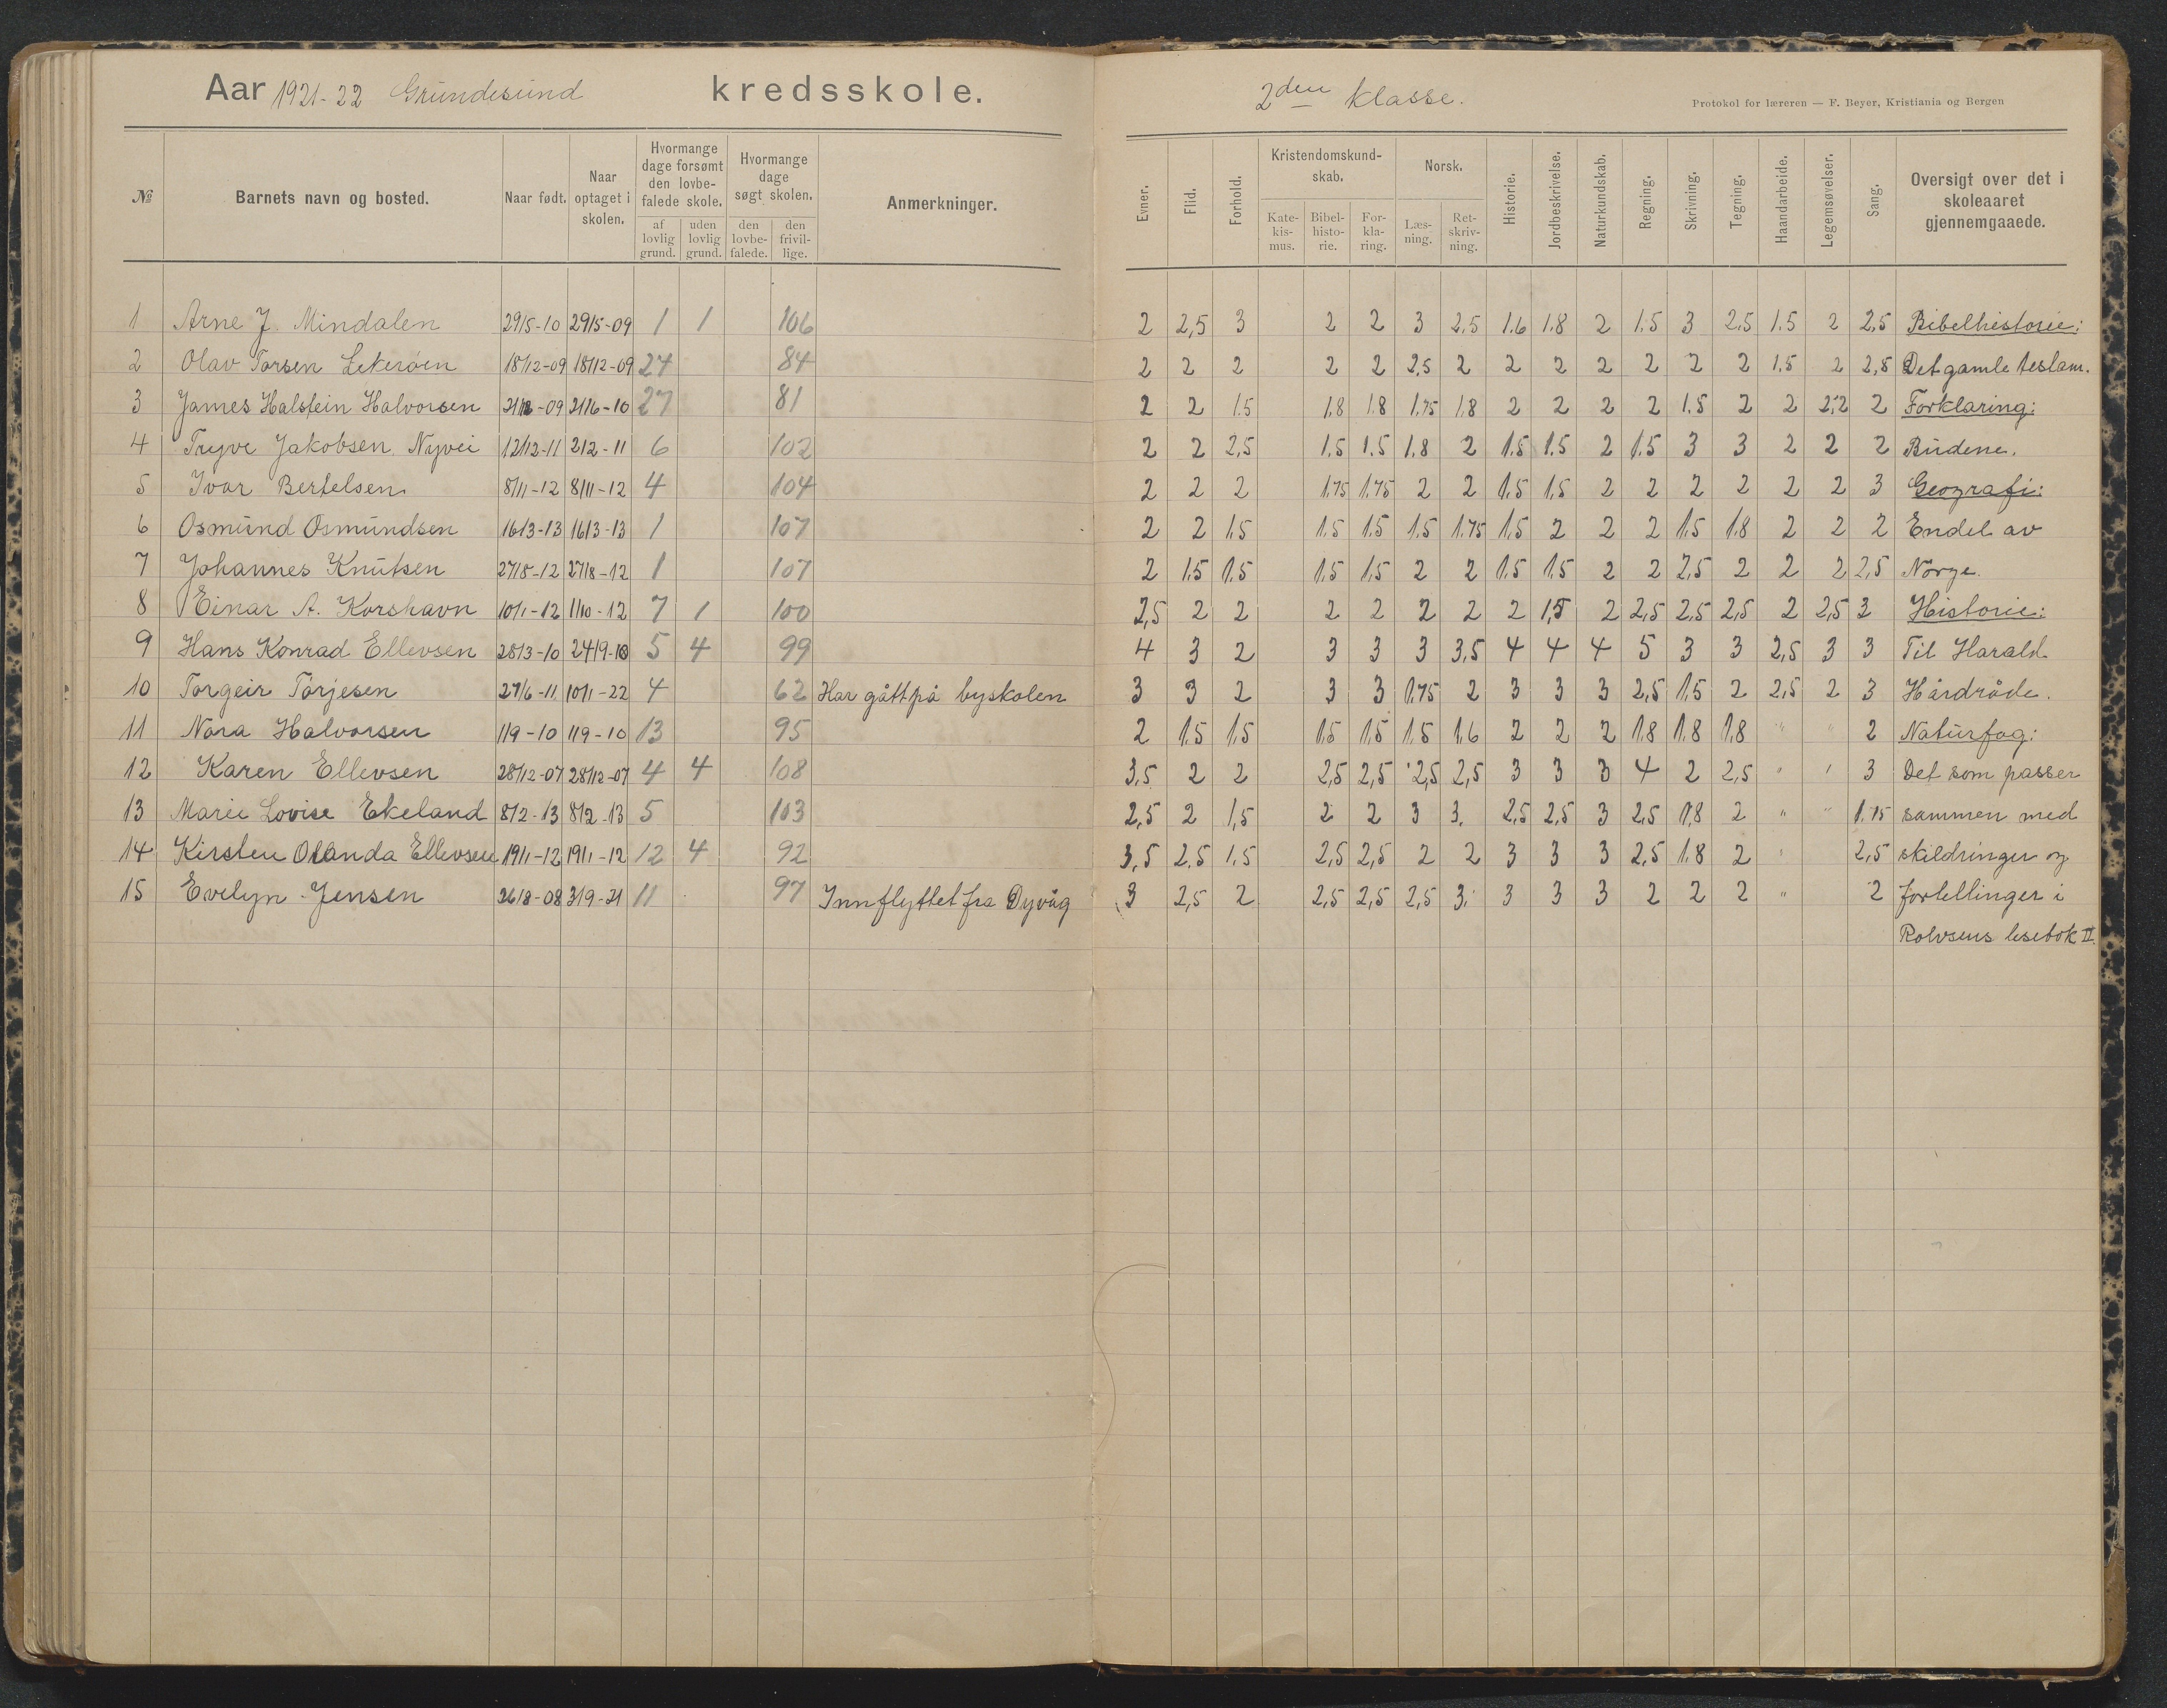 Aar 1921-22 Grundesund kredsskole.
№ Barnets navn og bosted. Naar født. Naar optaget i skolen. Hvormange dage forsømt den lovbefalede skole. af lovlig grund. uden lovlig grund. Hvormange dage søgt skolen. den lovbefalede. den frivillige. Anmerkninger.
1 Arne J. Mindalen 29/5-10 29/5-09 1 1 106
2 Olav Torsen 18/12-09 18/12-09 24 84
3 James Halstein Halvorsen 21/12-09 21/6-10 27 81
4 Trygve Jakobsen Nyvei 12/12-11 2/2-11 6 102
5 Ivar Bertelsen 8/11-12 8/11-12 4 104
6 Osmund Osmundsen 16/3-13 16/3-13 1 107
7 Johannes Knutsen 27/8-12 27/8-12 1 107
8 Einar A. Korshavn 10/1-12 1/10-12 7 1 100
9 Hans Konrad Ellevsen 28/3-10 24/9-10 5 4 99
10 Torgeir Torjesen 27/6-11 10/1-22 4 62 Har gått på byskolen
11 Nora Halvorsen 1/9-10 1/9-10 13 95
12 Karen Ellevsen 28/12-07 28/12-07 4 4 108
13 Marie Lovise Ekeland 8/2-13 8/2-13 5 103
14 Kirsten Olanda Ellevsen 19/1-12 19/1-12 12 4 92
15 Evelyn Jensen 26/8-08 3/9-21 11 97 Innflyttet fra Dyvåg
2den klasse.
Protokol for læreren — F. Beyer, Kristiania og Bergen
Evner. Flid. Forhold. Kristendomskundskab. Katekismus. Bibelhistorie. Forklaring. Norsk. Læsning. Retskrivning. Historie. Jordbeskrivelse. Naturkundskab. Regning. Skrivning. Tegning. Haandarbeide. Legemsøvelser. Sang. Oversigt over det i skoleaaret gjennemgaaede.
2 2,5 3 2 2 3 2,5 1.6 1.8 2 1.5 3 2.5 1.5 2 2,5 Bibelhistorie:
2 2 2 2 2 2,5 2 2 2 2 2 2 2 1.5 2 2,5 Det gamle testam.
2 2 1.5 1.8 1.8 1.75 1.8 2 2 2 2 1.5 2 2 2,2 2 Forklaring:
2 2 2,5 1.5 1.5 1.8 2 1.5 1.5 2 1.5 3 3 2 2 2 Budene.
2 2 2 1.75 1.75 2 2 1.5 1,5 2 2 2 2 2 2 3 Geografi:
2 2 1.5 1.5 1.5 1.5 1.75 1.5 2 2 2 1.5 1.8 2 2 2 Endel av
2 1.5 1.5 1.5 1,5 2 2 1.5 1.5 2 2 2,5 2 2 2 2,5 Norge.
2,5 2 2 2 2 2 2 2 1,5 2 2,5 2,5 2,5 2 2,5 3 Historie:
4 3 2 3 3 3 3,5 4 4 4 5 3 3 2,5 3 3 Til Harald
3 3 2 3 3 1.75 2 3 3 3 2,5 1.5 2 2,5 2 3 Hårdråde.
2 1.5 1.5 1.5 1.5 1.5 1.6 2 2 2 1.8 1.8 1.8 " " 2 Naturfag:
3,5 2 2 2,5 2,5 2,5 2,5 3 3 3 4 2 2,5 " " 3 Det som passer
2,5 2 1,5 2 2 3 3. 2,5 2,5 3 2,5 1,8 2 " " 1.75 sammen med
3,5 2,5 1.5 2,5 2,5 2 2 3 3 3 2,5 1.8 2 " 2,5 skildringer og
3 2,5 2 2,5 2,5 2,5 3. 3 3 3 2 2 2 " 2 fortellinger i
Rolvsens lesebok II.